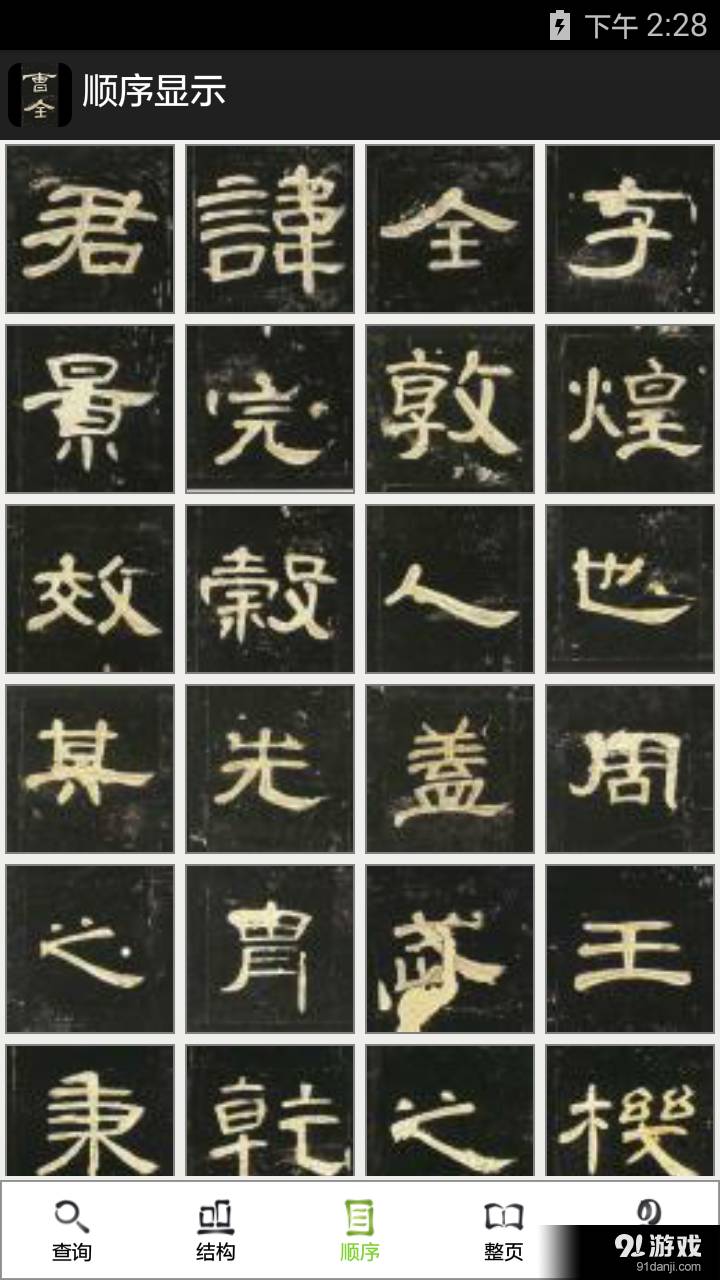 下午 2:28
曹全
顺序显示
君 諱 全 字
景 完 敦 煌
效 穀 人 也
其 先 蓋 周
之 胄 武 王
秉 乾 之 機
查询 结构 顺序 整页
91游戏
91danji.com